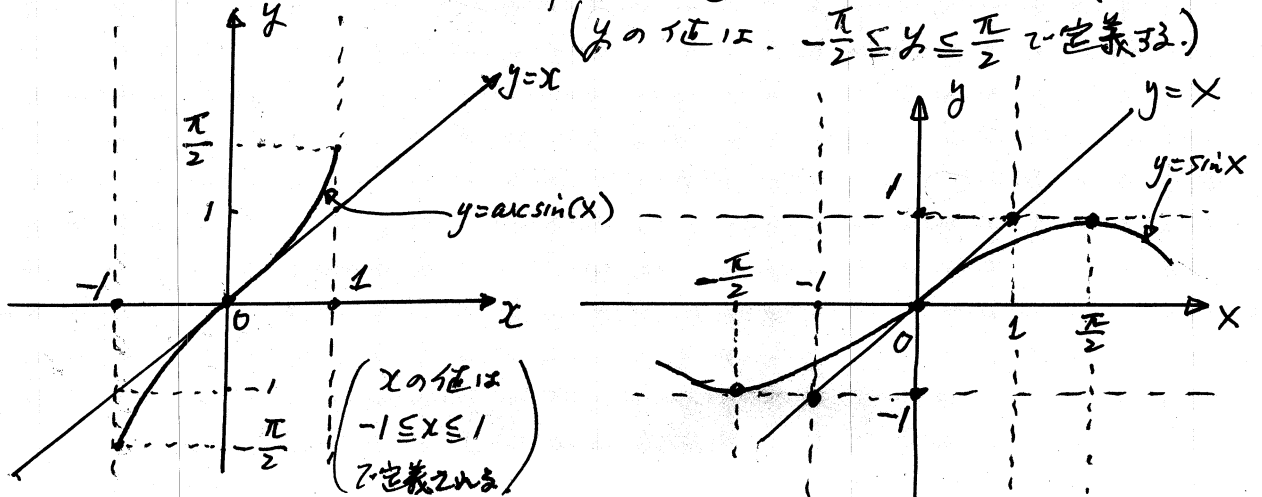 (yの値は. -π/2 ≦ y ≦ π/2 で定義する.)
y
y=x
π/2
1
y=arcsin(x)
-1
1
0
x
-1
-π/2
(xの値は
-1≦x≦1
で定義される)
y
y=x
y=sinx
1
-π/2
-1
0
1
π/2
x
-1